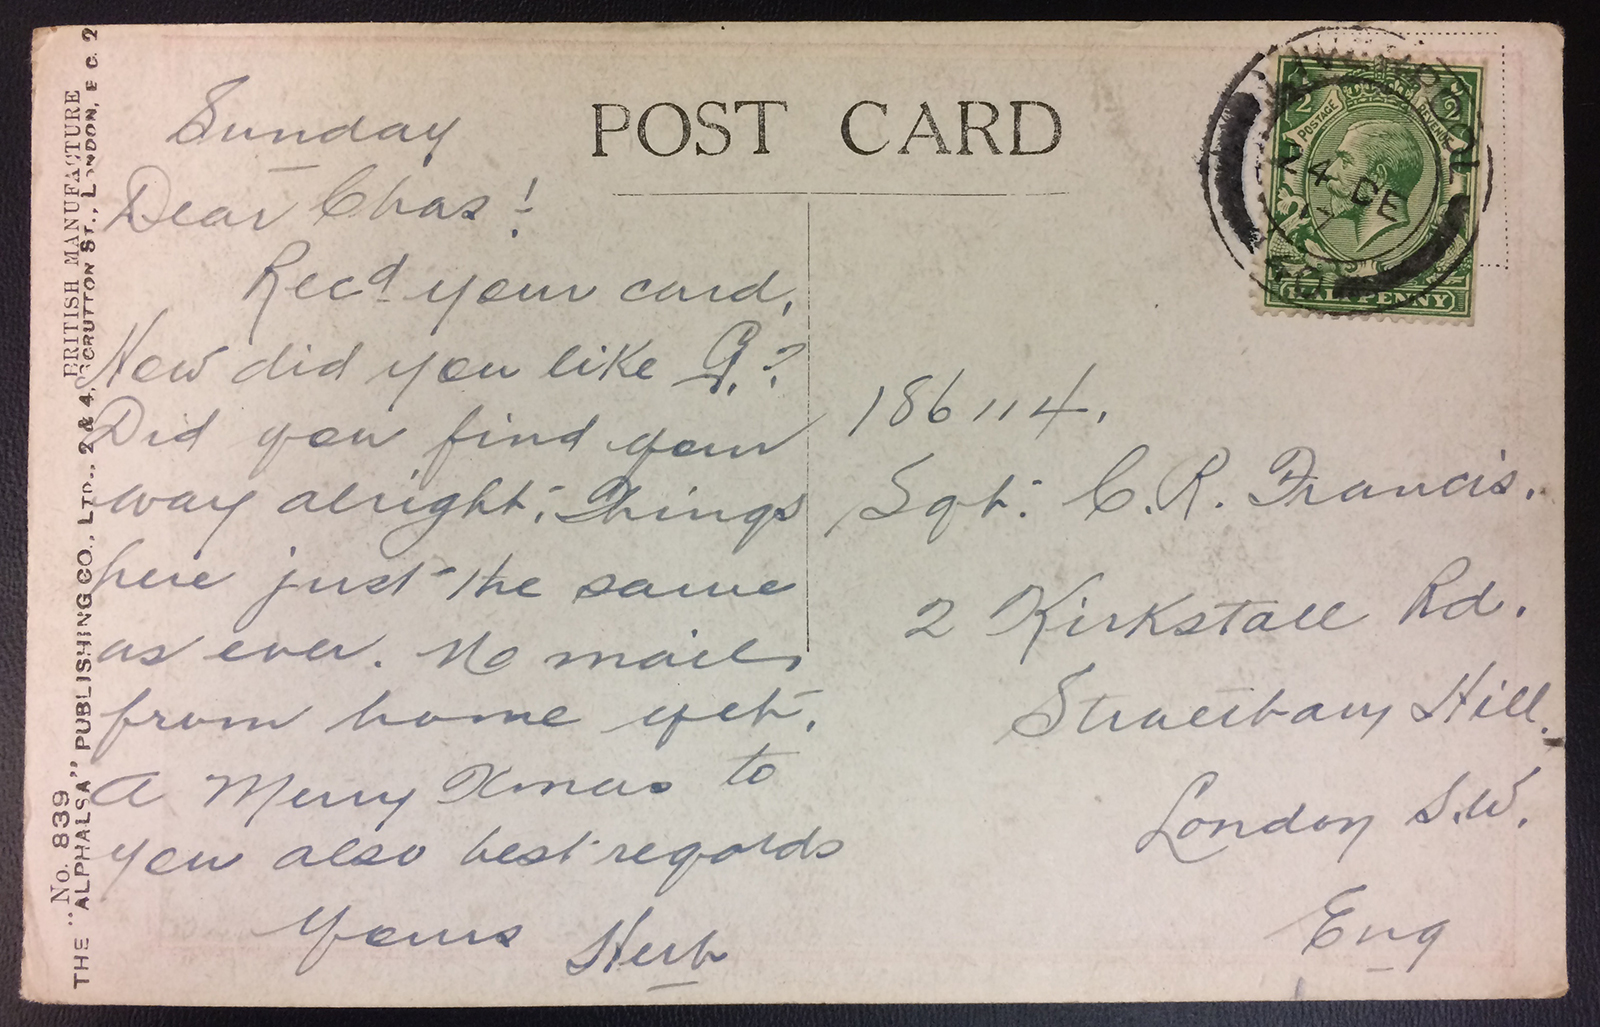 POST CARD
Sunday
Dear Chas!
Recd your card,
How did you like G.?
Did you find your
way alright. Things
here just the same
as ever. No mail
from home yet.
A Merry Xmas to
you also best regards
Yours Herb
186114.
Sgt. C. R. Francis.
2 Kirkstall Rd.
Streetbany Hill.
London S.W.
Eng
24 DE
17
POSTAGE REVENUE
HALFPENNY
"No. 839 BRITISH MANUFACTURE
THE "ALPHALSA" PUBLISHING CO., LTD., 2 & 4, SCRUTTON ST., LONDON, E C. 2